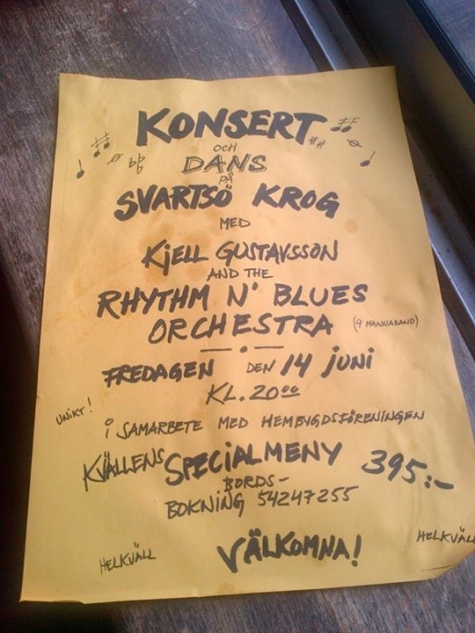 KONSERT
OCH
DANS
PÅ
SVARTSÖ KROG
MED
KJELL GUSTAVSSON
AND THE
RHYTHM N' BLUES
ORCHESTRA (9 MANNABAND)
FREDAGEN DEN 14 JUNI
KL. 20⁰⁰
UNIKT!
I SAMARBETE MED HEMBYGDSFÖRENINGEN
KVÄLLENS SPECIALMENY 395:-
BORDS-
BOKNING 54247255
HELKVÄLL VÄLKOMNA! HELKVÄLL